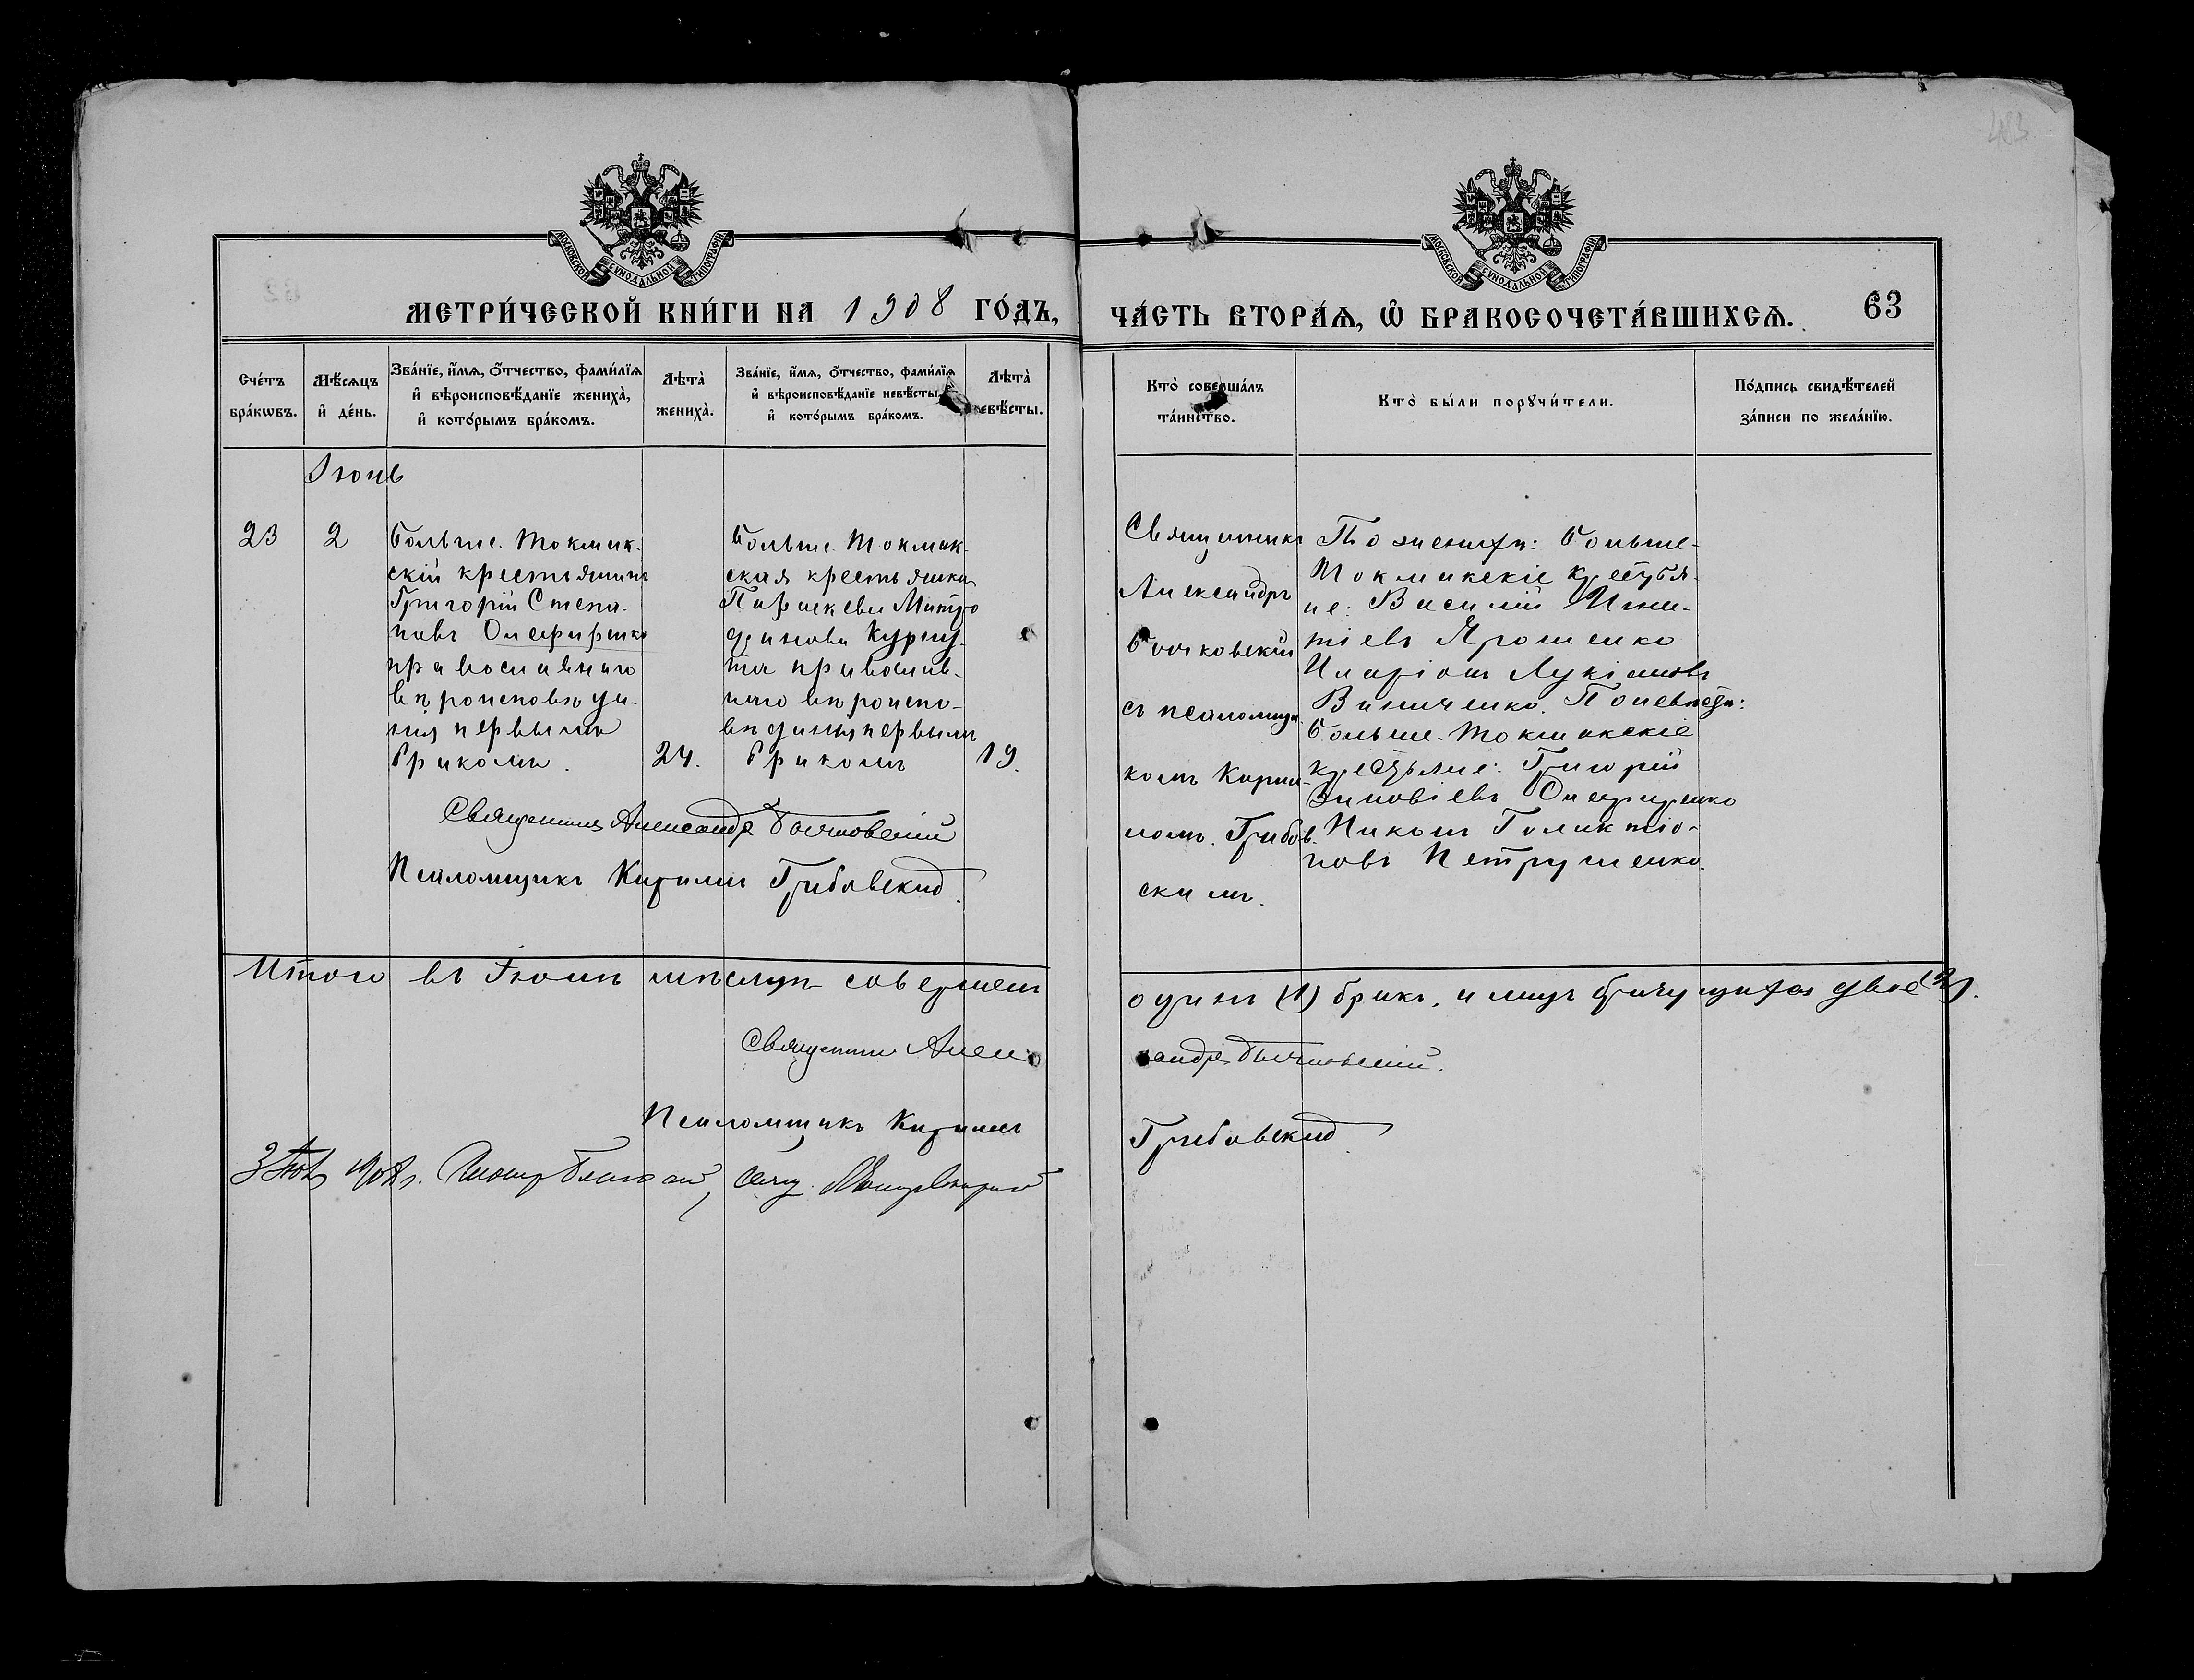 483
МОСКОВСКОЙ СѴНОДАЛЬНОЙ ТИПОГРАФІИ
МОСКОВСКОЙ СѴНОДАЛЬНОЙ ТИПОГРАФІИ
МЕТРИ́ЧЕСКОЙ КНИ́ГИ НА 1908 ГО́ДЪ,
ЧА́СТЬ ВТОРА́Ѧ, Ѽ БРАКОСОЧЕТА́ВШИХСѦ.
63
Сче́тъ
бра́кѡвъ.
Мѣ́сѧцъ
и҆ де́нь.
Зва́нїе, и҆́мѧ, ѻ҆́тчество, фами́лїѧ
и҆ вѣроисповѣ́данїе жениха̀,
и҆ кото́рымъ бра́комъ.
Лѣта̀
жениха̀.
Зва́нїе, и҆́мѧ, ѻ҆́тчество, фами́лїѧ
и҆ вѣроисповѣ́данїе невѣ́сты,
и҆ кото́рымъ бра́комъ.
Лѣта̀
невѣ́сты.
Кто̀ соверша́лъ
та́инство.
Кто̀ бы́ли порꙋчи́тели.
По́дпись свидѣ́телей
за́писи по жела́нїю.
Іюнь
23
2
Больше-Токмак-
скій крестьянинъ
Григорій Степа-
новъ Олефиренко
православнаго
вѣроисповѣда-
нія первымъ
бракомъ.
24.
Больше-Токмак-
ская крестьянка
Параскева Митро
фанова Курпу-
та православ-
наго вѣроиспо-
вѣданія первымъ
бракомъ
19.
Священникъ
Александръ
Бочковскій
съ псаломщи-
комъ Кирил-
ломъ Грибов-
скимъ.
По женихѣ: Больше-
Токмакскіе крестья-
не: Василій Игна-
тіевъ Ярошенко
Иларіонъ Лукіановъ
Винниченко. По невѣстѣ:
Больше-Токмакскіе
крестьяне: Григорій
Зиновіевъ Олефиренко
Никонъ Галактіо-
новъ Петрушенко.
Священникъ Александръ Бочковскій
Псаломщикъ Кириллъ Грибовскій.
Итого въ Іюнѣ мѣсяцѣ совершенъ
одинъ (1) бракъ, и лицъ двое (2).
Священникъ Алек
сандръ Бочковскій.
Псаломщикъ Кириллъ
Грибовскій.
1908 г.